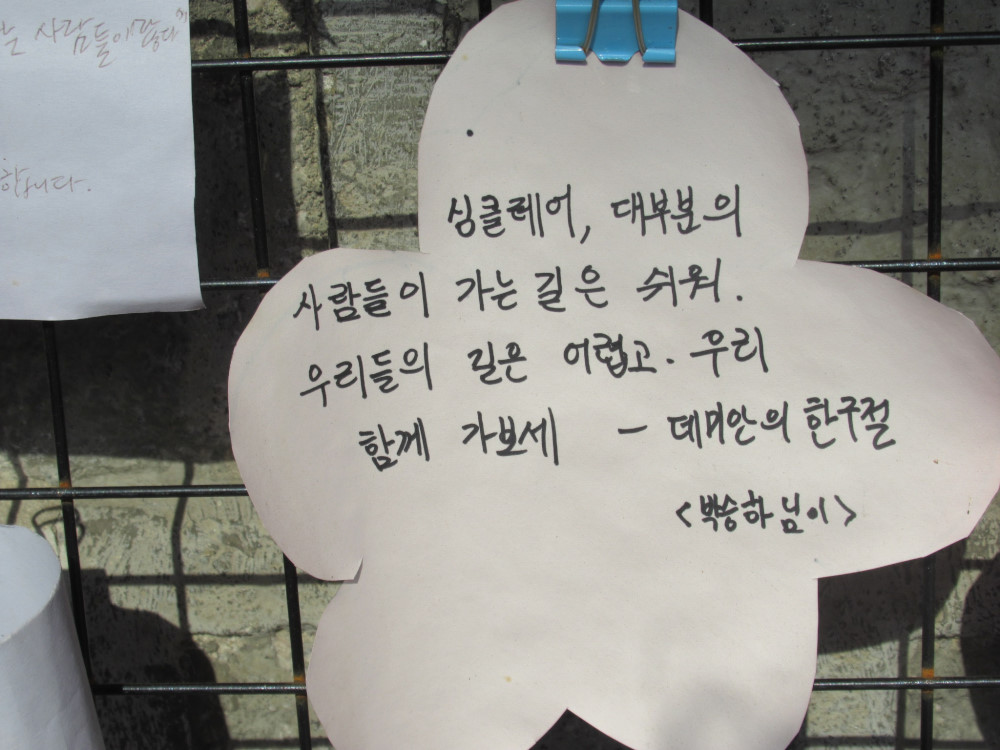 사람들이 많다
합니다.
싱클레어, 대부분의
사람들이 가는 길은 쉬워.
우리들의 길은 어렵고. 우리
함께 가보세 - 데미안의 한구절
<박승하님이>